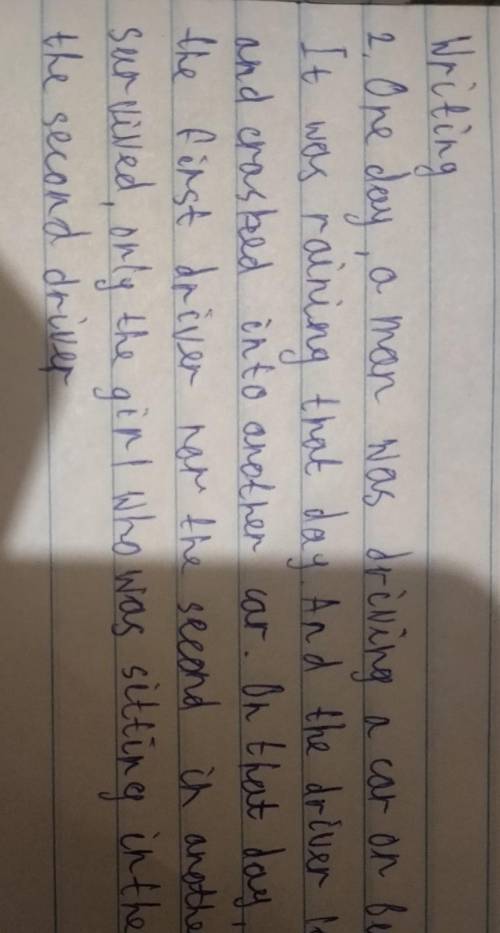 Writing
2. One day, a man was driving a car on
It was raining that day. And the driver
and crashed into another car. On that day,
the first driver nor the second in
survived, only the girl who was sitting in the
the second driver